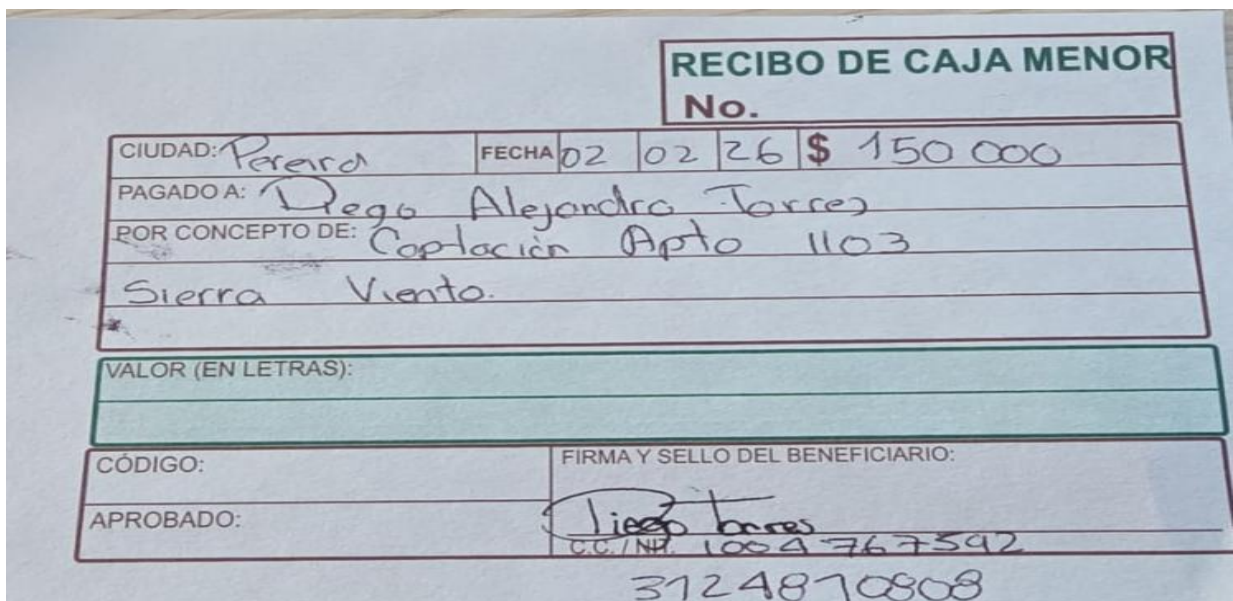 RECIBO DE CAJA MENOR
No.
CIUDAD: Pereira FECHA 02 02 26 $ 150 000
PAGADO A: Diego Alejandro Torres
POR CONCEPTO DE: Captación Apto 1103
Sierra Viento.
VALOR (EN LETRAS):
CÓDIGO: FIRMA Y SELLO DEL BENEFICIARIO:
APROBADO: Diego Torres
C.C. / NIT. 1004767592
3124870808